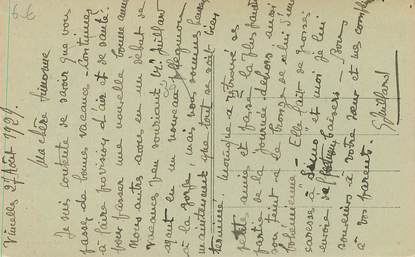 Vinelles 27 Août 1929.
Ma chère Simonne
Je suis enchantée de savoir que vous
passez de bonnes vacances. Continuez
à faire provision d'air et de santé
pour passer une nouvelle bonne année
Nous autres avons eu un début de
vacances peu souriant Mr Guillard
ayant eu un nouveau phlegmon
à la gorge, mais nous sommes heureux
maintenant que tout se soit bien
terminé Monique a retrouvé ses
petite amie et passe la plus grande
partie de la journée dehors, aussi
son teint a le bronze de celui d'une
bohémienne - Elle fait de grosses
caresses à et moi je lui
envoie de baisers. Bon
souvenir à votre sœur et mes
à vos parents.
Guillard